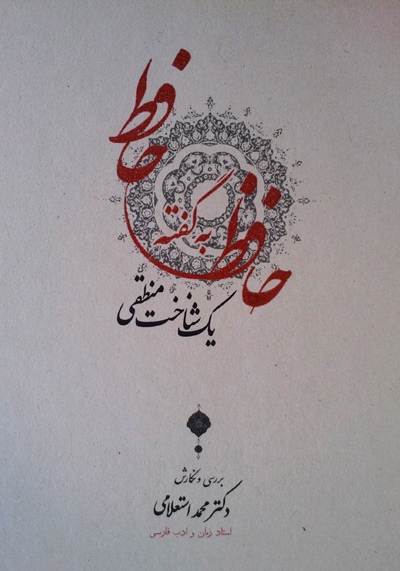 حافظ
به گفته
حافظ
یک شناخت منطقی
بررسی و نگارش
دکتر محمد استعلامی
استاد زبان و ادب فارسی